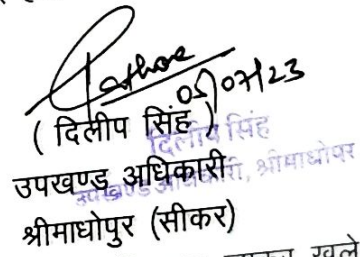 05/07/23
( दिलीप सिंह )
दिलीप सिंह
उपखण्ड अधिकारी
उपखण्ड अधिकारी, श्रीमाधोपुर
श्रीमाधोपुर (सीकर)
खुले